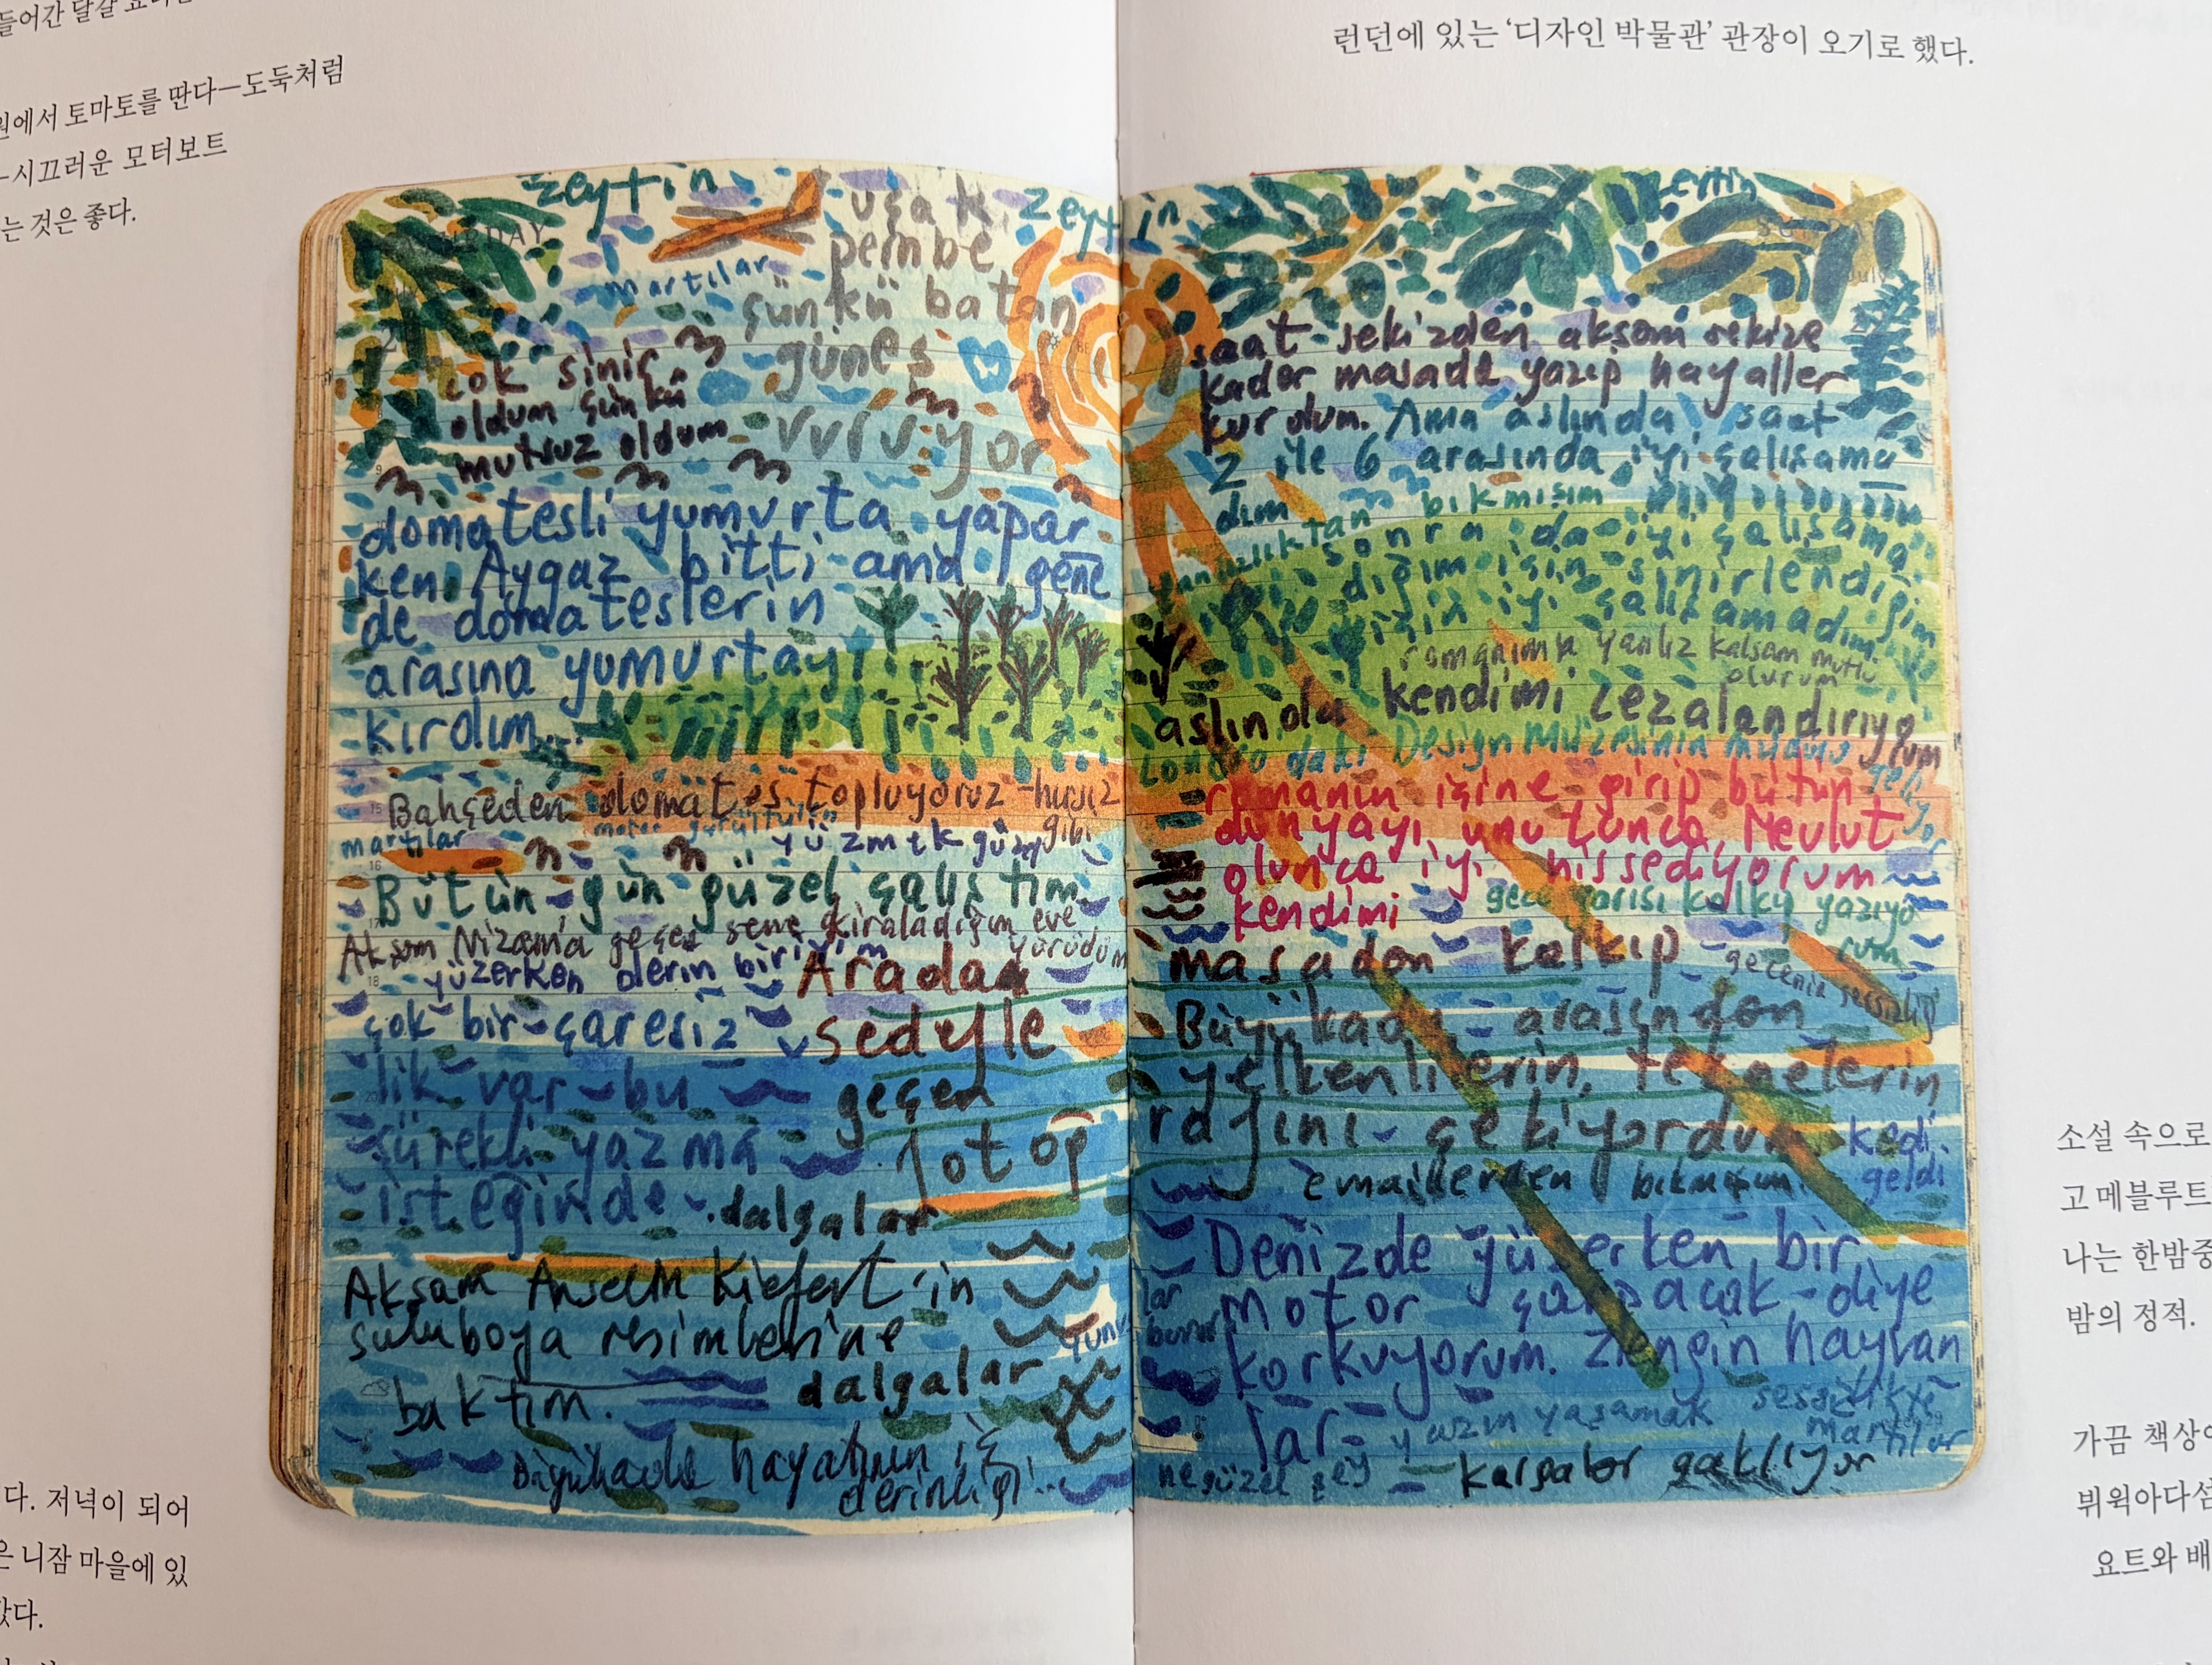 들어간 달걀
원에서 토마토를 딴다—도둑처럼
—시끄러운 모터보트
는 것은 좋다.
다. 저녁이 되어
은 니잠 마을에 있
갔다.
zeytin
uçak
zeytin
pembe
martılar
çünkü batan
güneş
vuruyor
çok sinir
oldum çünkü
mutsuz oldum
domatesli yumurta yapar-
ken Aygaz bitti ama gene
de domateslerin
arasına yumurtayı
kırdım...
Bahçeden domates topluyoruz - hırsız
gibi
martılar
motor gürültüsü
yüzmek güzel
Bütün gün güzel çalıştım
Akşam Nizam'a geçen sene kiraladığım eve
yürüdüm
yüzerken derin biri
Aradan
çok bir çaresiz
sedyeyle
lik var - bu
geçen
sürekli yazma
fotoğ
isteğinde
dalgalar
Akşam Anselm Kiefert'in
suluboya resimlerine
baktım.
dalgalar
Büyükada hayatının iç
derinliği...
런던에 있는 ‘디자인 박물관’ 관장이 오기로 했다.
saat sekizden akşam sekize
kadar masada yazıp hayaller
kurdum. Ama aslında saat
2 ile 6 arasında iyi çalışama-
dım
bıkmışım
sonra da iyi çalışama-
dığım için sinirlendiğim
için iyi çalışamadım.
romanımla yanlız kalsam mutlu
olurum
aslında kendimi cezalandırıyorum
Londradaki Design Müzesinin müdürü
geliyor
romanın içine girip bütün
dünyayı unutunca, Mevlut
olunca iyi hissediyorum
kendimi
gece yarısı kalkıp yazıyo
rum
masadan kalkıp
gecenin sessizliği
Büyükada - arasından
yelkenlilerin, teknelerin
rafını çekiyordum
kedi
geldi
emaillerden bıkmışım.
Denizde yüzerken bir
motor çarpacak diye
korkuyorum. Zengin hayvan
lar -
yazın yaşamak
sessizlikte
martılar
ne güzel şey
kargalar gaklıyor
소설 속으로
고 메블루트
나는 한밤중
밤의 정적.
가끔 책상에
뷔윅아다섬
요트와 배